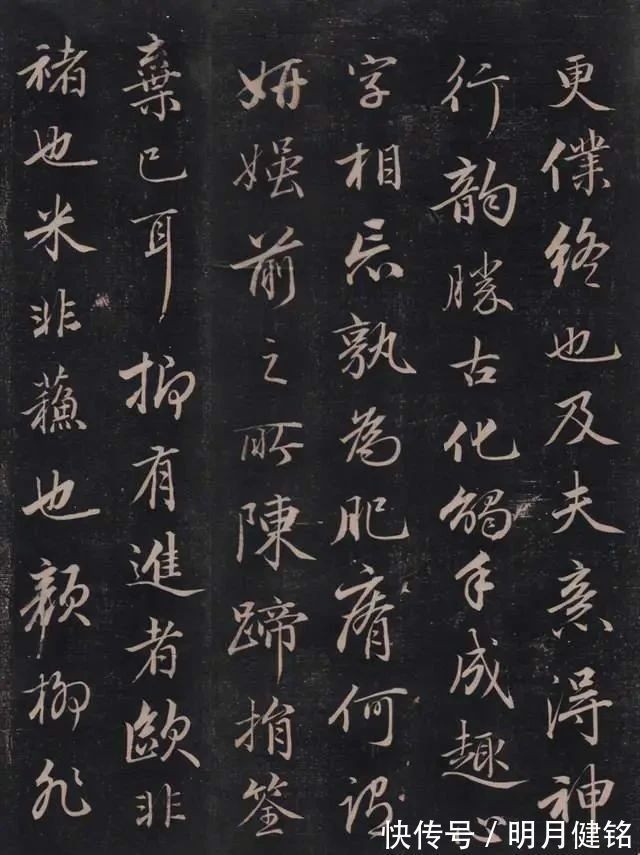 更僕終也及夫意得神
行韵勝古化觸手成趣心
字相忘孰為肥瘠何謂
妍媸前之所陳蹄捐筌
棄已耳抑有進者歐非
褚也米非蘇也顏柳非
快传号/明月健铭